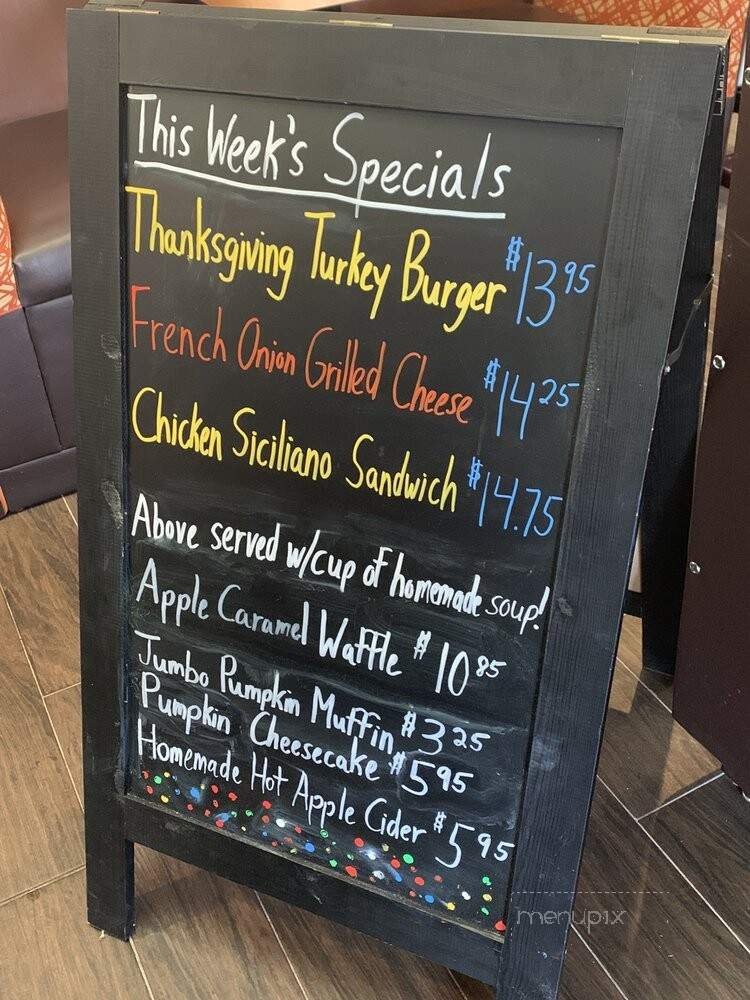 This Week's Specials
Thanksgiving Turkey Burger $13 95
French Onion Grilled Cheese $14 25
Chicken Siciliano Sandwich $14.75
Above served w/cup of homemade soup!
Apple Caramel Waffle $10 85
Jumbo Pumpkin Muffin $3 25
Pumpkin Cheesecake $5 95
Homemade Hot Apple Cider $5 95
menupix